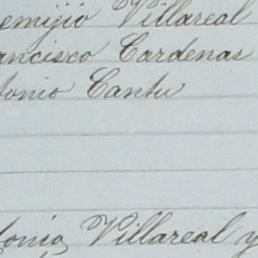 emijio Villareal
ancisco Cardenas
tonio Cantu
tonio Villareal y